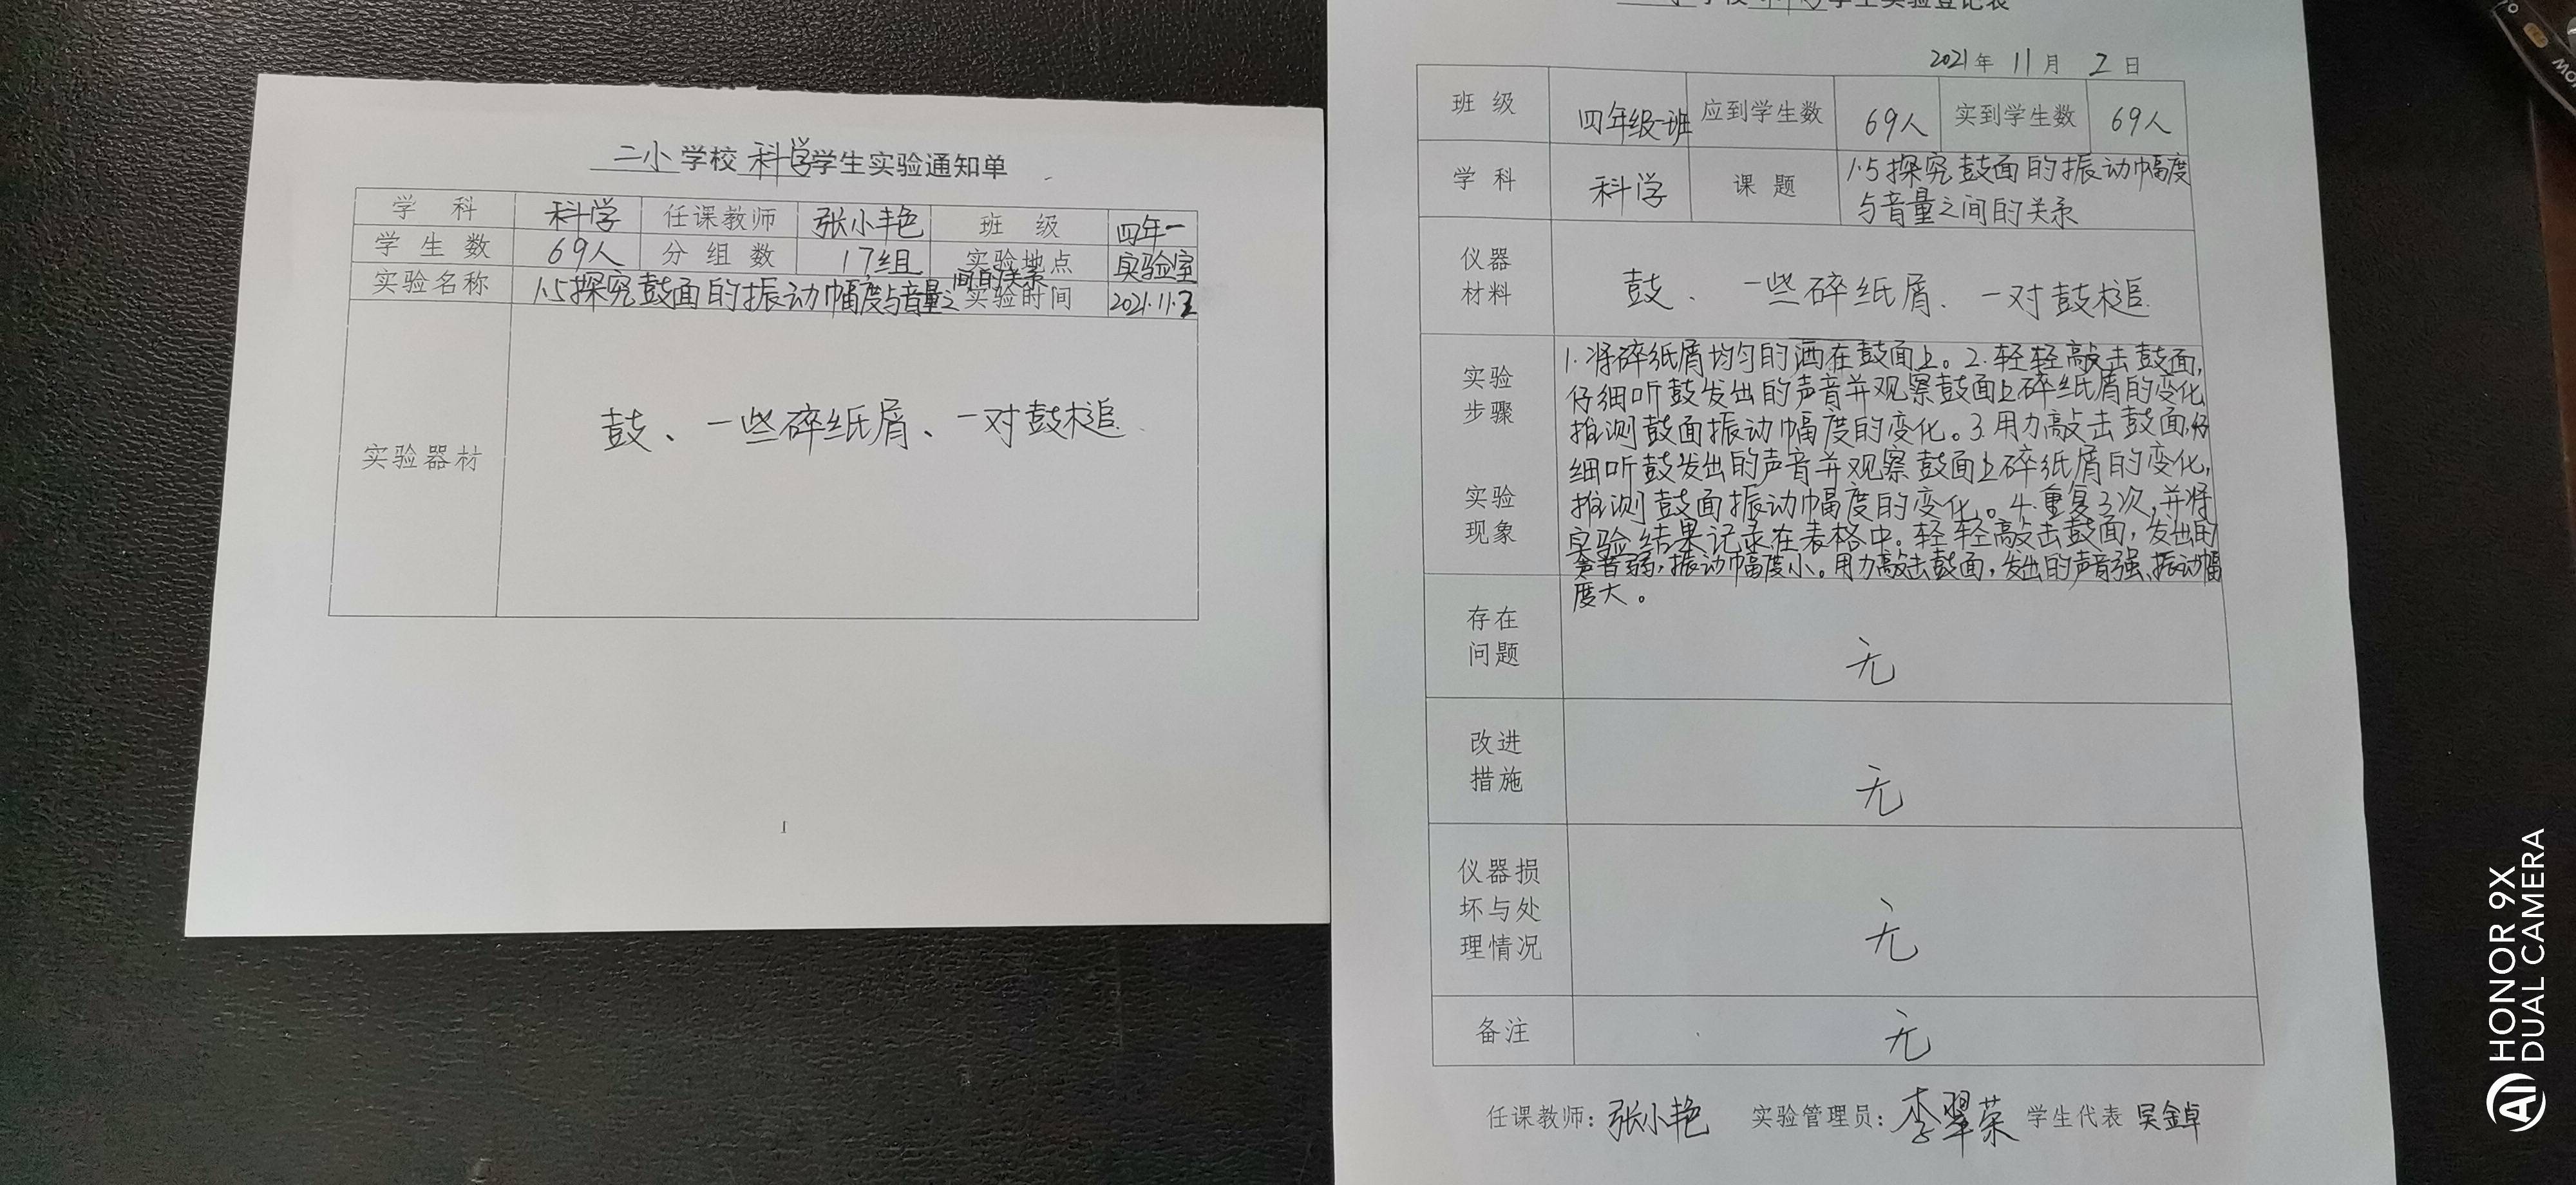 二小学校科学学生实验通知单
学科 科学 任课教师 张小艳 班级 四年一
学生数 69人 分组数 17组 实验地点 实验室
实验名称 1.5探究鼓面的振动幅度与音量之间的关系 实验时间 2021.11.2
实验器材 鼓、一些碎纸屑、一对鼓槌
1
学校科学学生实验登记表
2021年 11月 2日
班级 四年级一班 应到学生数 69人 实到学生数 69人
学科 科学 课题 1.5探究鼓面的振动幅度
与音量之间的关系
仪器
材料
鼓、一些碎纸屑、一对鼓槌
实验
步骤
实验
现象
1.将碎纸屑均匀的洒在鼓面上。2.轻轻敲击鼓面,
仔细听鼓发出的声音并观察鼓面上碎纸屑的变化,
推测鼓面振动幅度的变化。3.用力敲击鼓面,仔
细听鼓发出的声音并观察鼓面上碎纸屑的变化,
推测鼓面振动幅度的变化。4.重复3次,并将
实验结果记录在表格中。轻轻敲击鼓面,发出的
声音弱,振动幅度小。用力敲击鼓面,发出的声音强、振动幅
度大。
存在
问题
无
改进
措施
无
仪器损
坏与处
理情况
无
备注 无
任课教师:张小艳 实验管理员:李翠荣 学生代表 吴金卓
HONOR 9X
DUAL CAMERA
AI